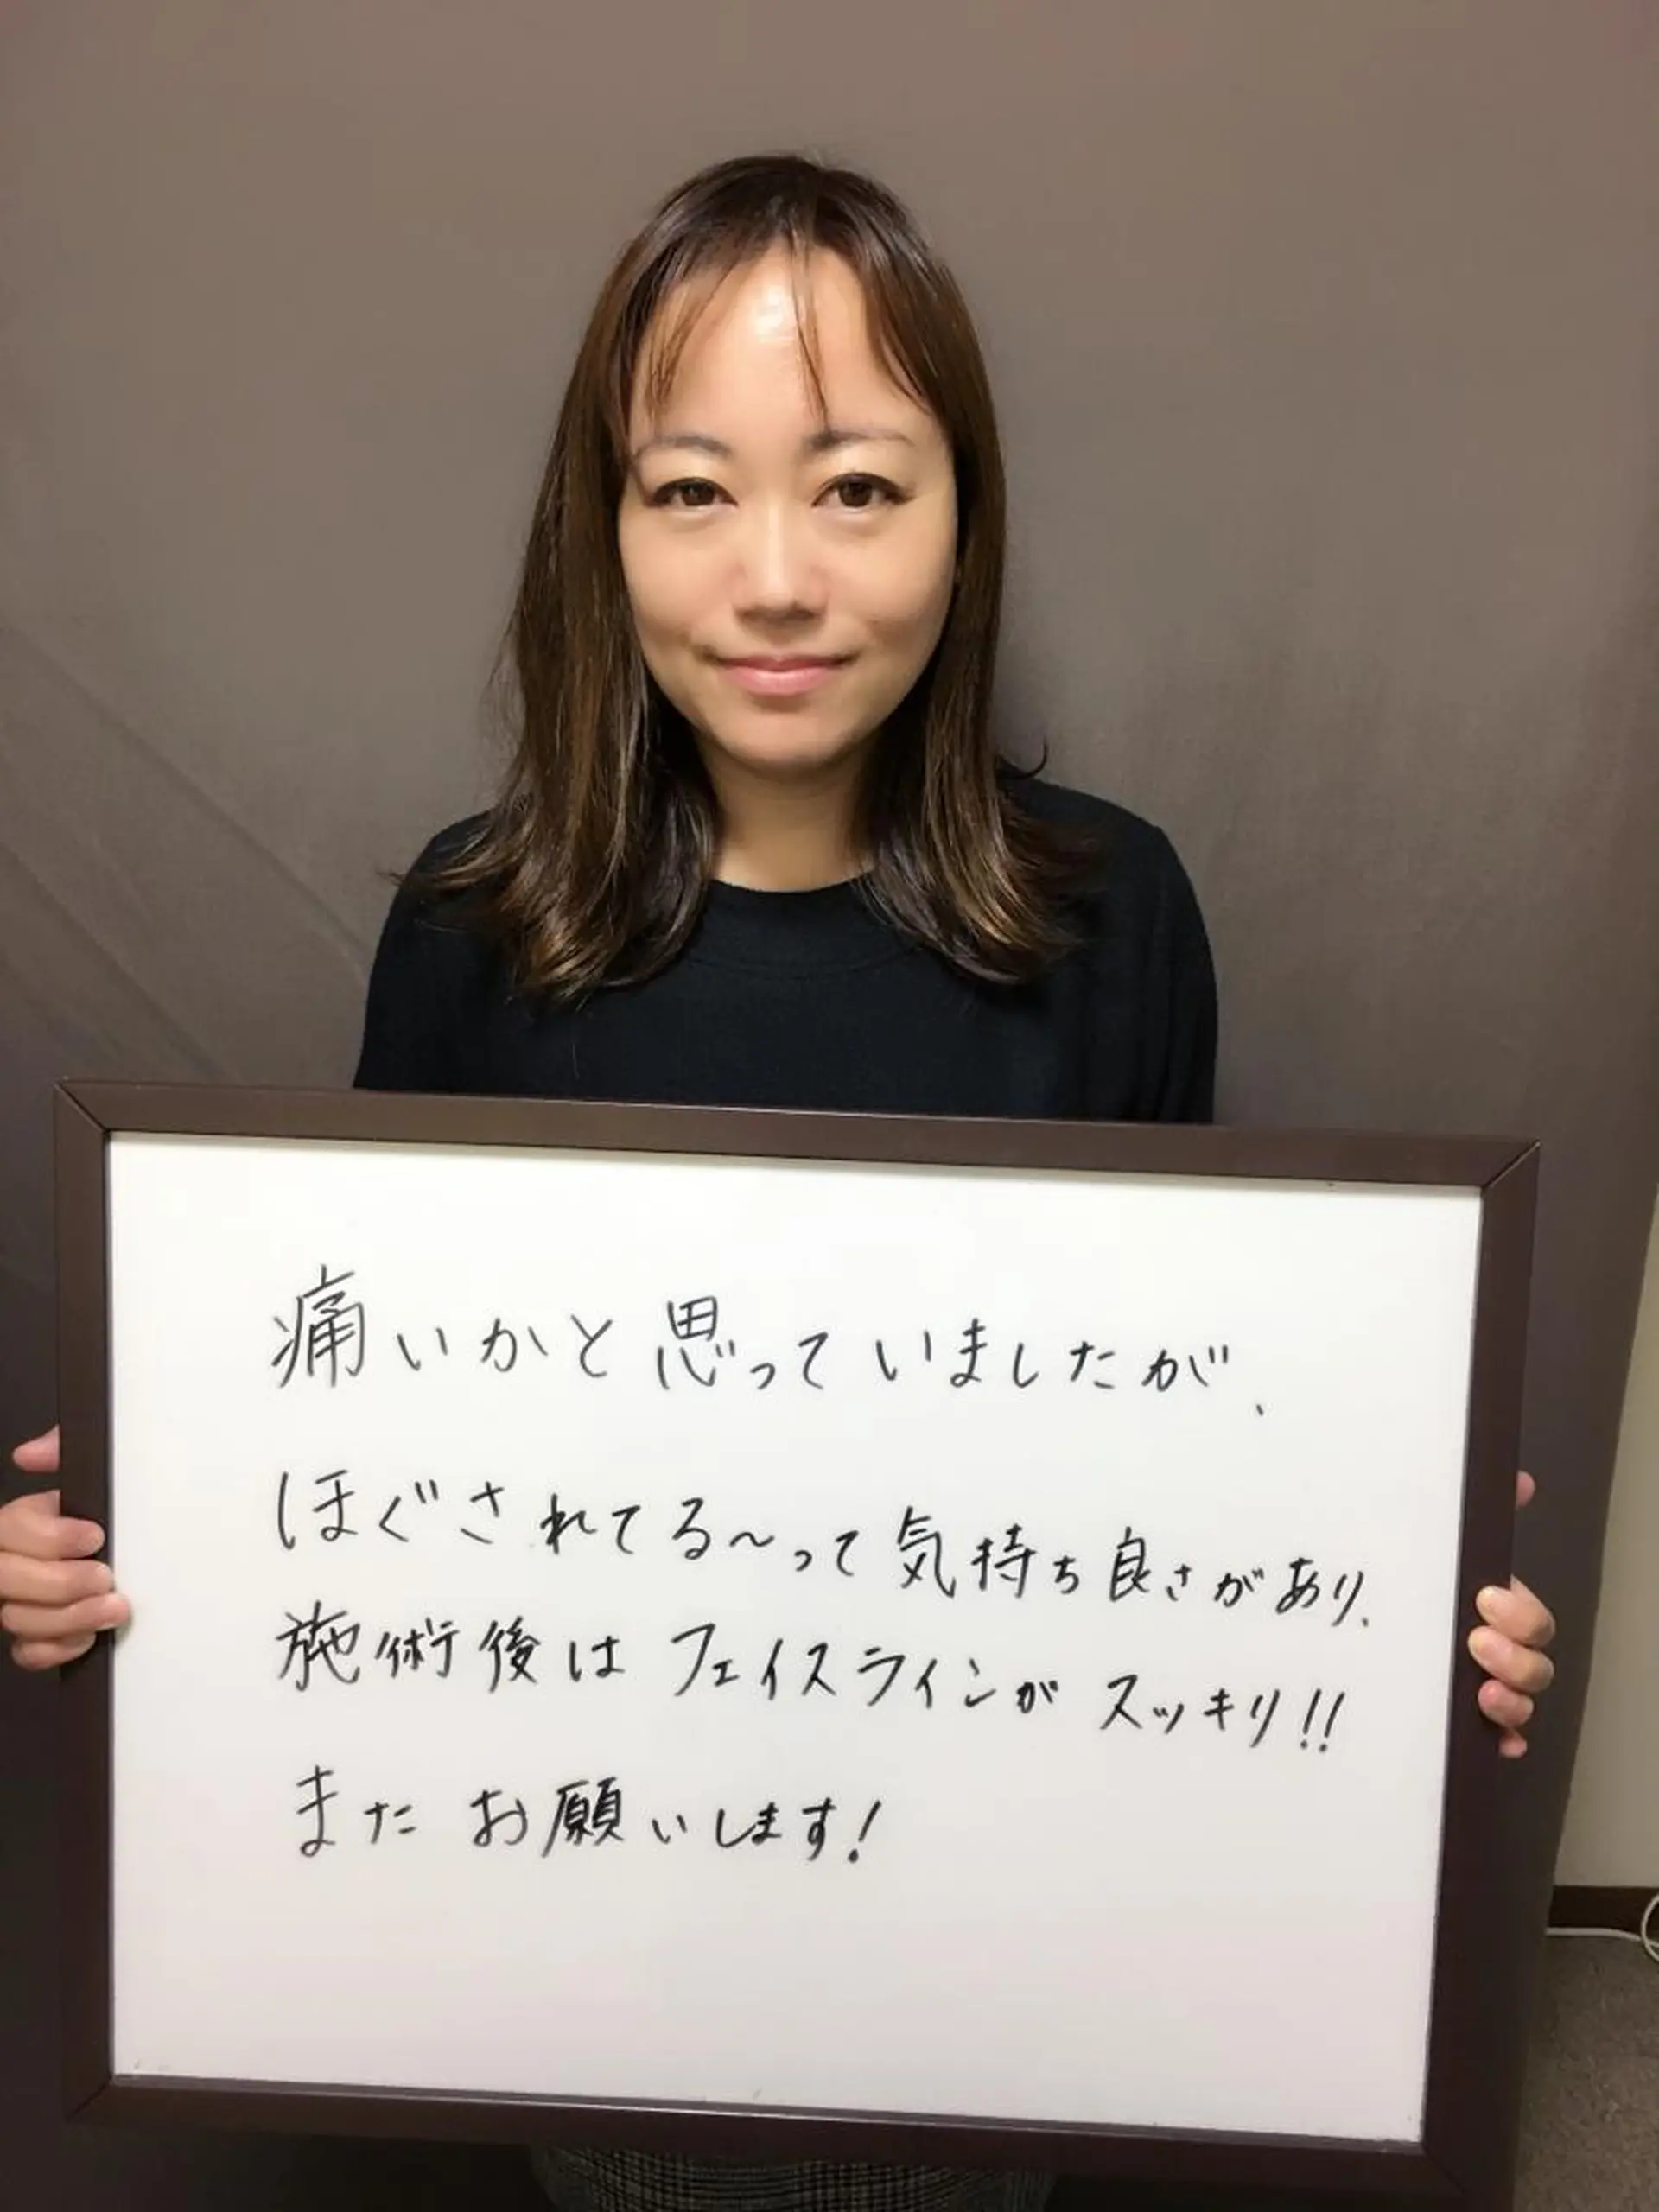 痛いかと思っていましたが、
ほぐされてる～って気持ち良さがあり、
施術後はフェイスラインがスッキリ!!
またお願いします!